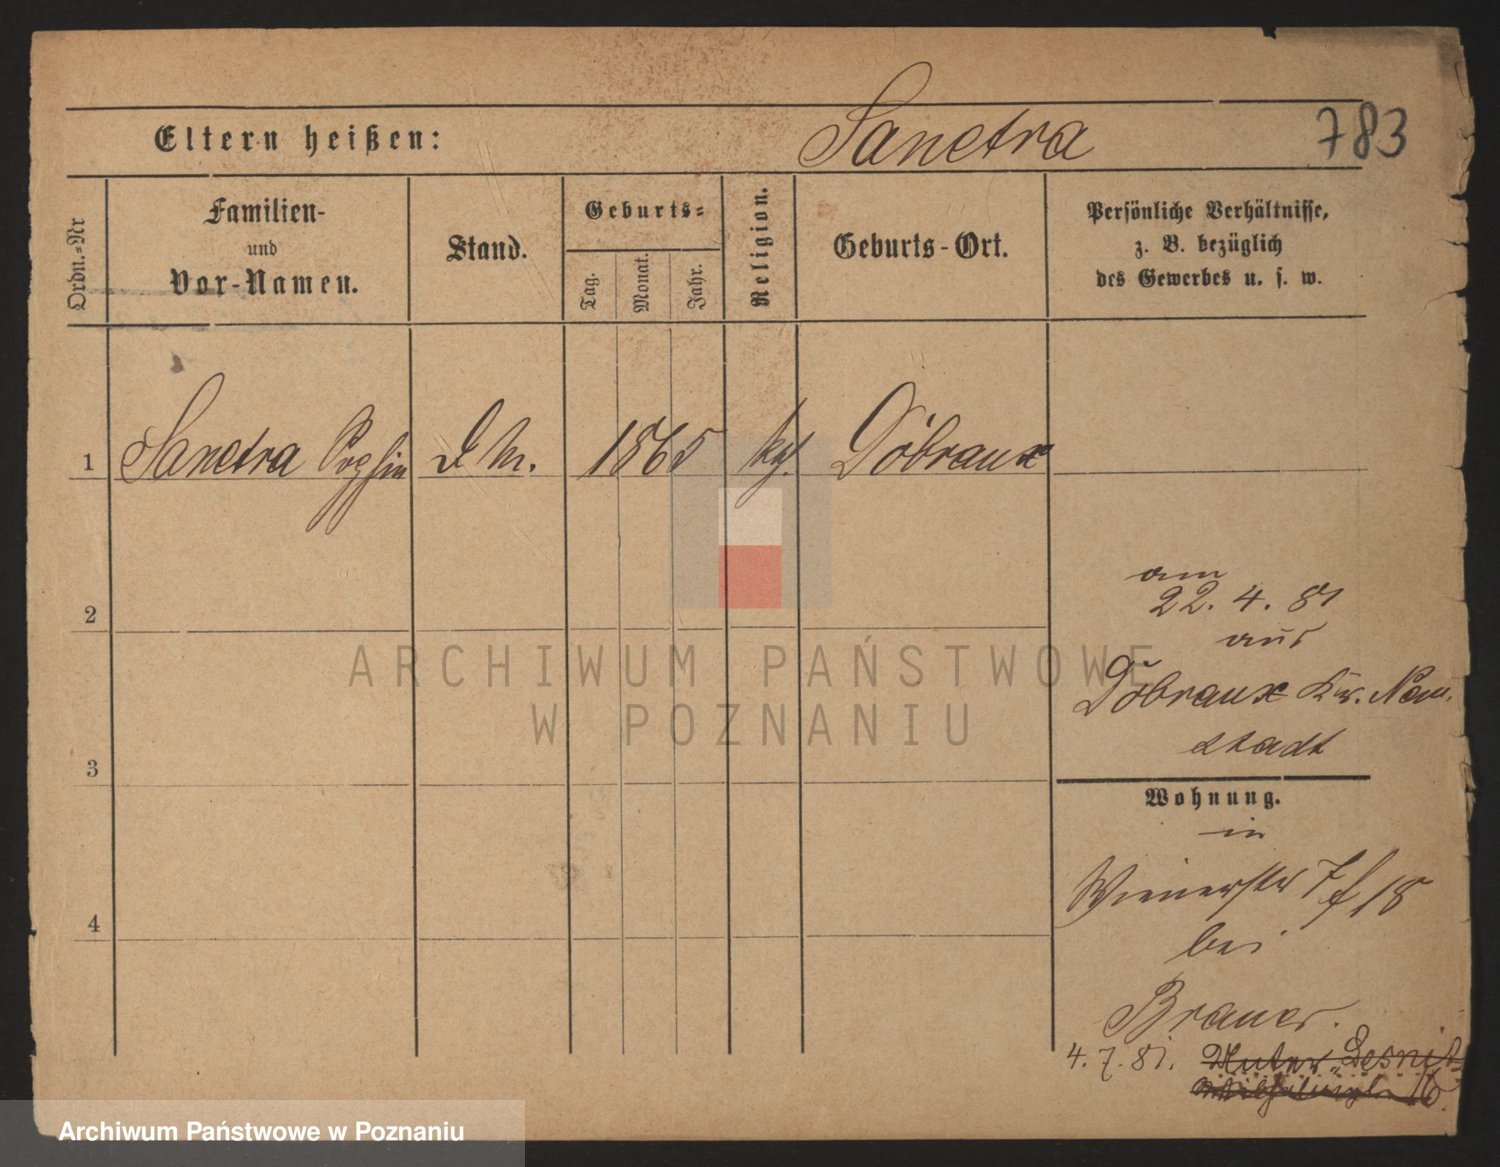 Eltern heißen: Sanetra 783
Ordn.-Nr
Familien-
und
Vor-Namen.
Stand.
Geburts-
Tag.
Monat.
Jahr.
Religion.
Geburts-Ort.
Persönliche Verhältnisse,
z. B. bezüglich
des Gewerbes u. s. w.
1 Sanetra D. M. 1865 Döbraux
am
22. 4. 81
aus
2
Döbraux Kr. Neu
stadt
3
Wohnung.
in
Wienerstr 7
4
bei
Brauer.
4. 7. 81.
ARCHIWUM PAŃSTWOWE
W POZNANIU
Archiwum Państwowe w Poznaniu